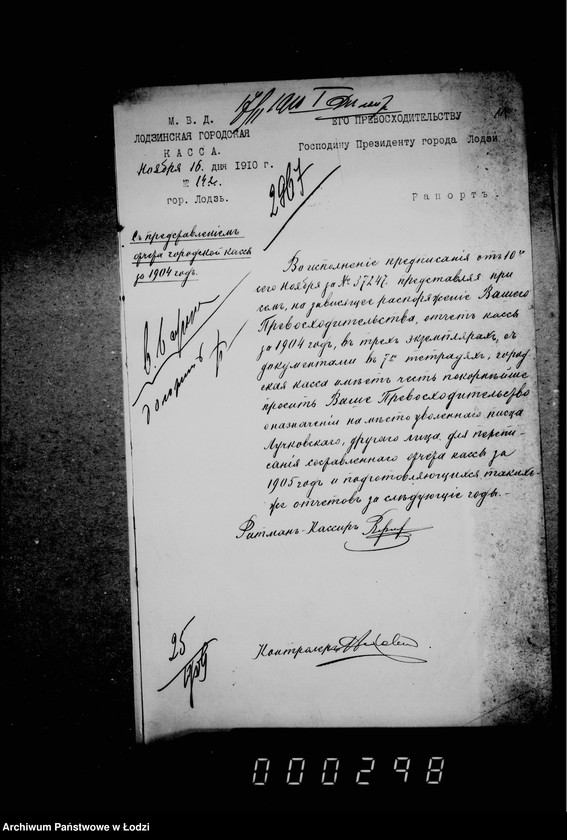 М. В. Д.
ЛОДЗИНСКАЯ ГОРОДСКАЯ
КАССА.
Ноября 16. дня 1910 г.
№ 142.
гор. Лодзь.
ЕГО ПРЕВОСХОДИТЕЛЬСТВУ
Господину Президенту города Лодзи
2867
Рапортъ.
Съ представленіемъ
отчета городской кассы
за 1904 годъ.
Во исполненіе предписанія отъ 10го
сего Ноября за № 17247. представляя при
семъ, на зависящее распоряженіе Вашего
Превосходительства, отчетъ кассы
за 1904 годъ, въ трехъ экземплярахъ, съ
документами въ 7ми тетрадяхъ, город-
ская касса имѣетъ честь покорнѣйше
просить Ваше Превосходительство
о назначеніи на мѣсто уволеннаго писца
Лучковскаго, другаго лица, для перепи-
санія составленнаго отчета кассы за
1905 годъ и подготовляющихся такихъ-
же отчетовъ за слѣдующіе годы.-
Ратманъ-Кассиръ
Контролеръ
25
000298
Archiwum Państwowe w Łodzi